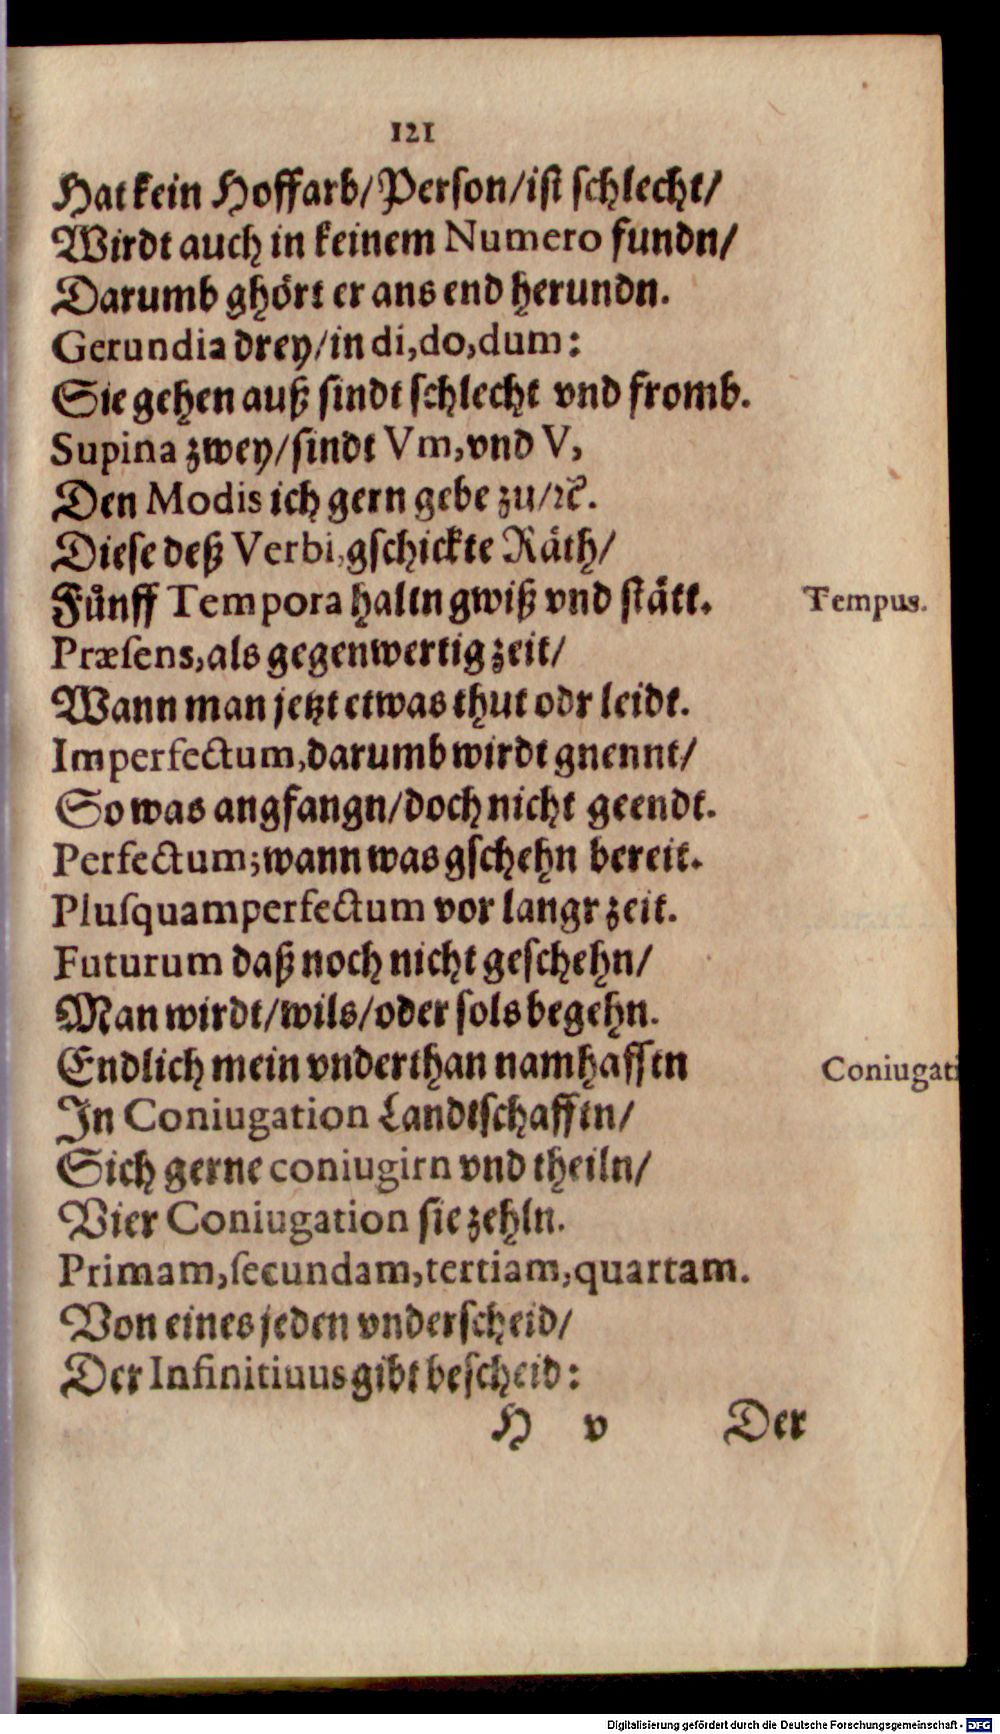 121
Hat kein Hoffarb/Person/ist schlecht/
Wirdt auch in keinem Numero fundn/
Darumb ghört er ans end herundn.
Gerundia drey/in di,do,dum:
Sie gehen auß sindt schlecht vnd fromb.
Supina zwey/sindt Vm,vnd V,
Den Modis ich gern gebe zu/ꝛc.
Diese deß Verbi,gschickte Räth/
Fünff Tempora haltn gwiß vnd stätt.
Tempus.
Præsens,als gegenwertig zeit/
Wann man jetzt etwas thut odr leidt.
Imperfectum,darumb wirdt gnennt/
So was angfangn/doch nicht geendt.
Perfectum;wann was gschehn bereit.
Plusquamperfectum vor langr zeit.
Futurum daß noch nicht geschehn/
Man wirdt/wils/oder sols begehn.
Endlich mein vnderthan namhafftn
Coniugati
In Coniugation Landtschafftn/
Sich gerne coniugirn vnd theiln/
Vier Coniugation sie zehln.
Primam,secundam,tertiam,quartam.
Von eines jeden vnderscheid/
Der Infinitiuus gibt bescheid:
H v Der
Digitalisierung gefördert durch die Deutsche Forschungsgemeinschaft - DFG